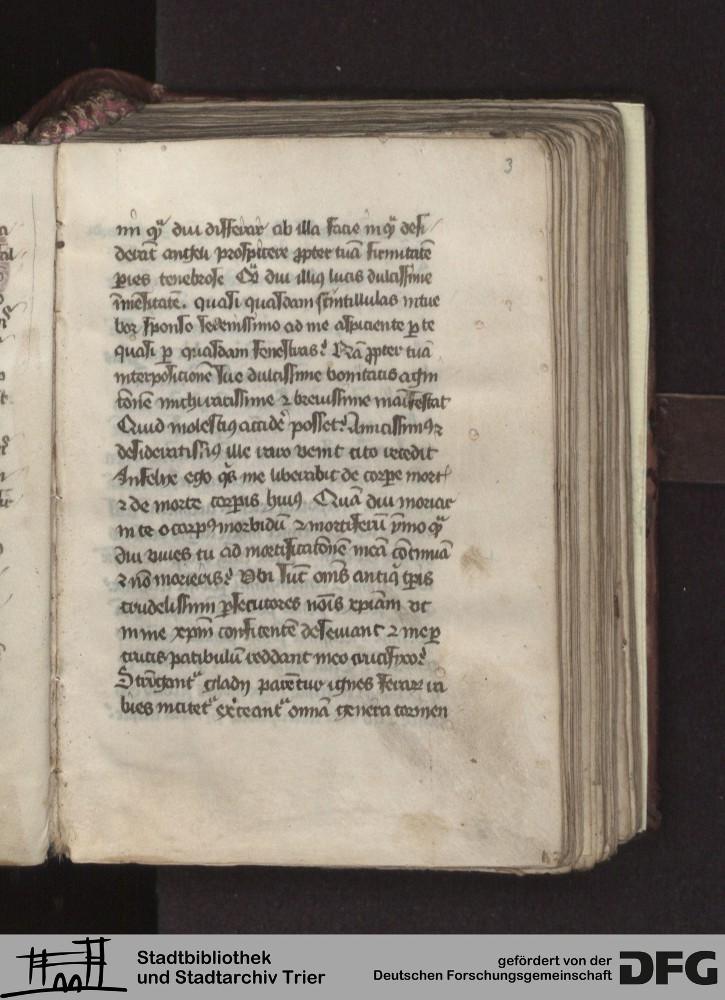 3
mi q diu differar ab illa facie in q̄ desi
derāt angeli prospicere ꝓpter tuā firmitatē
ꝑies tenebrose diu illiꝰ lucis dulcissime
īmēsitatē. quasi quasdam scintillulas intue
boꝛ sponso serenissimo ad me aspiciente ꝑ te
quasi ꝑ quasdam fenestras? Nā ꝓpter tuā
interposicionē sue dulcissime bonitatis
michi rarissime ⁊ breuissime maīfestat
Quid molestiꝰ accidē posset? Amicissimꝰ ⁊
desideratissimꝰ ille raro venit cito recedit
Infelix ego q̄s me liberabit de corꝑe mort
⁊ de morte corꝑis huiꝰ Quā diu moriar
in te o corpꝰ morbidū ⁊ mortiferū ymo q̄
diu viues tu ad mortificacōnē meā cōtinuā
⁊ nō morieris? Vbi sūt om̄s antiq̄ tp̄is
crudelissimi ꝑsecutores nōis xp̄iani vt
in me xp̄m confitentē deseuiant ⁊ me ꝑ
crucis patibulū reddant meo crucifixo?
Stringant gladij parētur ignes feraꝝ ra
bies incitet exerceant omnia genera tormen
Stadtbibliothek
und Stadtarchiv Trier
gefördert von der
Deutschen Forschungsgemeinschaft
DFG